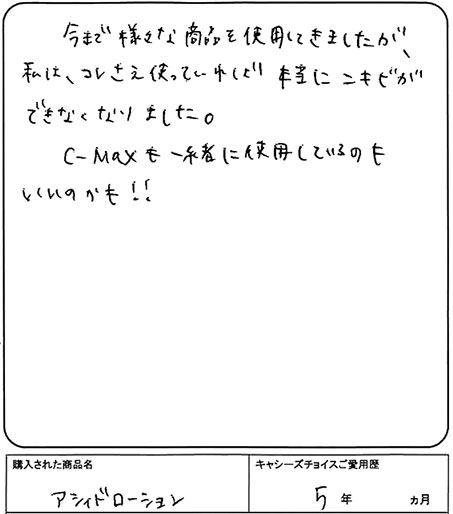 今まで様々な商品を使用してきましたが、
私は、コレさえ使っていれば本当にニキビが
できなくなりました。
C-MaXも一緒に使用しているのも
いいのかも!!
購入された商品名
キャシーズチョイスご愛用歴
アシィドローション
5年 ヵ月